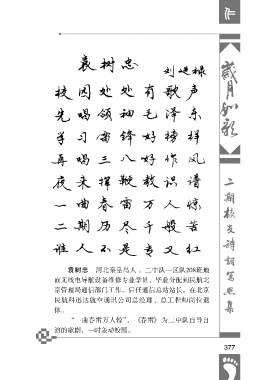 作
袁树忠
刘建禄
校园处处有歌声
先唱领袖毛泽东
学习雷锋好榜样
再唱三八好作风
夜来挥鞭教识谱
一曲春雷万人惊
二期历尽千般苦
谁人不是专又红
袁树忠 河北秦皇岛人。二中队一区队208班地
面无线电导航设备维修专业学员。毕业分配到民航北
京管理局通信部门工作。后任通信总站站长。在北京
民航科迅达航空通讯公司总经理、总工程师岗位退
休。
“一曲春雷万人惊”,《春雷》为二中队自导自
演的歌剧,一时轰动校园。
岁月如歌
二期校友诗词写照集
377